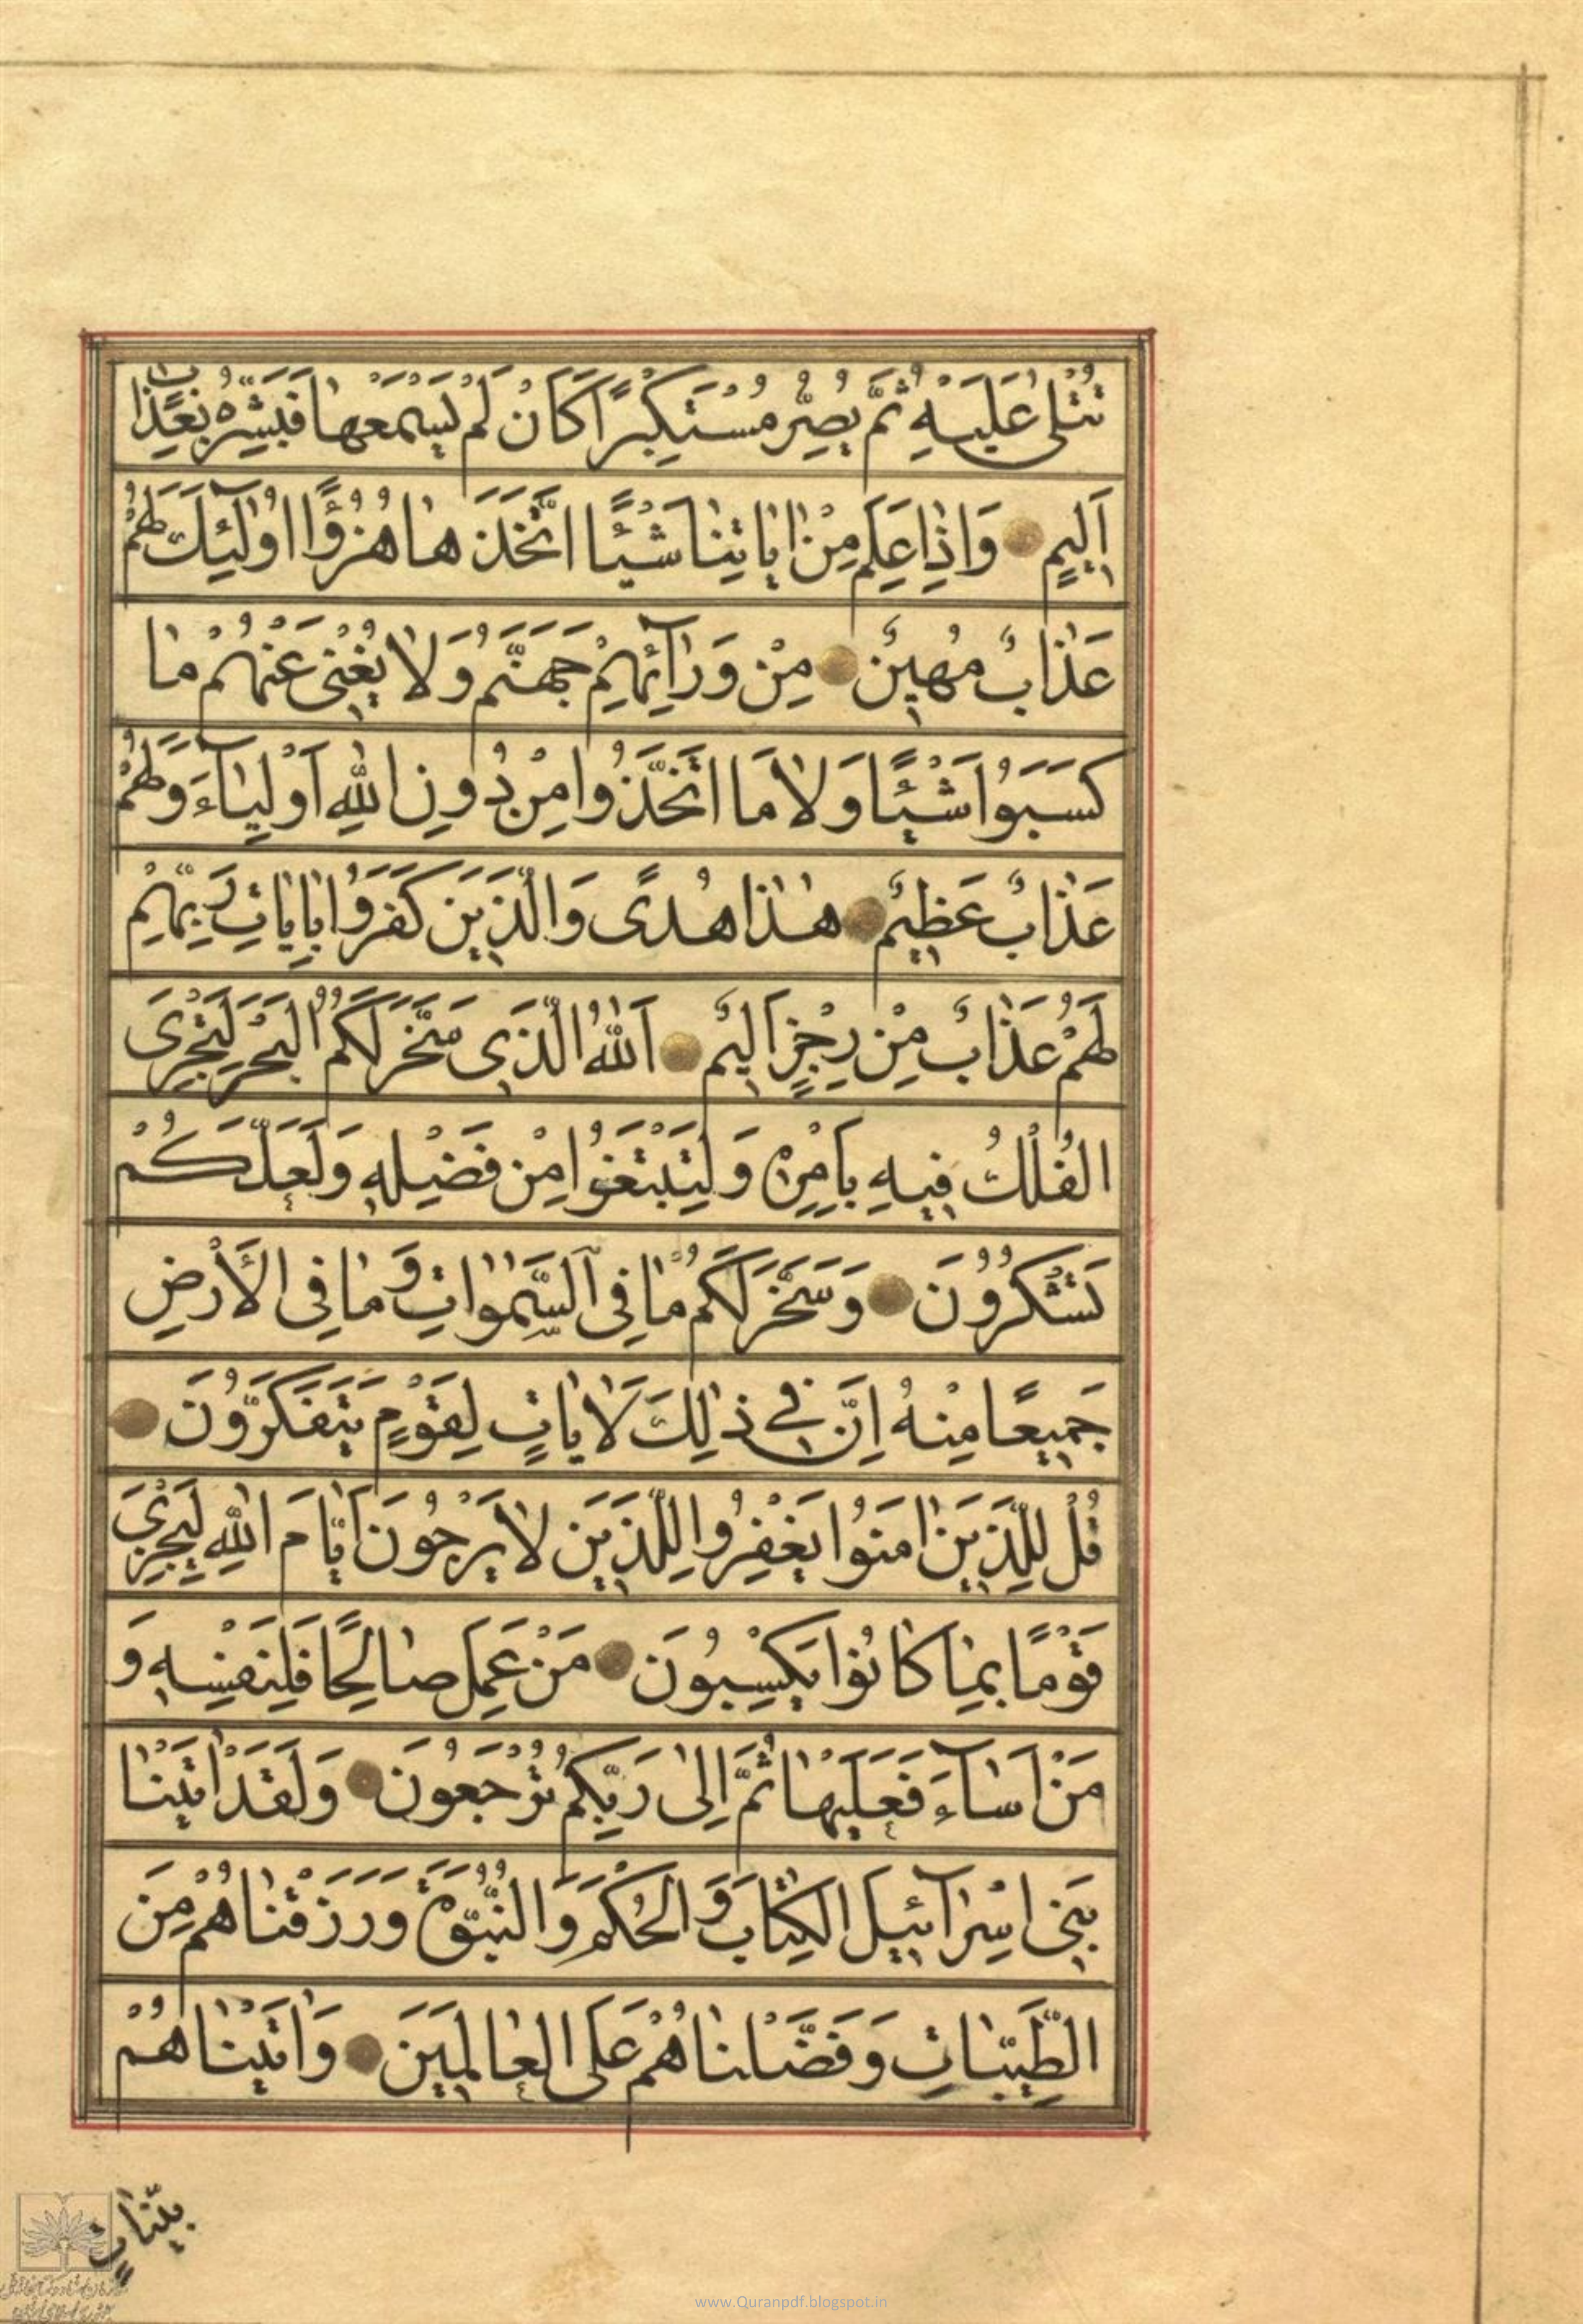 تُتْلىٰ عَلَيْهِ ثُمَّ يُصِرُّ مُسْتَكْبِرًا كَانْ لَمْ يَسْمَعْهٰا فَبَشِّرْهُ بِعَذٰابٍ
اَلِيمٍ وَاِذٰا عَلِمَ مِنْ اٰيٰاتِنٰا شَيْئًا اتَّخَذَهٰا هُزُؤًا اُولٰٓئِكَ لَهُمْ
عَذٰابٌ مُهِينٌ مِنْ وَرٰآئِهِمْ جَهَنَّمُ وَلٰا يُغْنِى عَنْهُمْ مٰا
كَسَبَوُا شَيْئًا وَلٰا مَا اتَّخَذُوا مِنْ دُونِ اللّٰهِ اَوْلِيٰآءَ وَلَهُمْ
عَذٰابٌ عَظِيمٌ هٰذٰا هُدًى وَالَّذِينَ كَفَرُوا بِاٰيٰاتِ رَبِّهِمْ
لَهُمْ عَذٰابٌ مِنْ رِجْزٍ اَلِيمٌ اَللّٰهُ الَّذِى سَخَّرَ لَكُمُ الْبَحْرَ لِتَجْرِىَ
الْفُلْكُ فِيهِ بِاَمْرِهِ وَلِتَبْتَغُوا مِنْ فَضْلِهِ وَلَعَلَّكُمْ
تَشْكُرُونَ وَسَخَّرَ لَكُمْ مٰا فِى السَّمٰوٰاتِ وَمٰا فِى الْأَرْضِ
جَمِيعًا مِنْهُ اِنَّ فِي ذٰلِكَ لَاٰيٰاتٍ لِقَوْمٍ يَتَفَكَّرُونَ
قُلْ لِلَّذِينَ اٰمَنُوا يَغْفِرُوا لِلَّذِينَ لٰا يَرْجُونَ اَيّٰامَ اللّٰهِ لِيَجْزِىَ
قَوْمًا بِمٰا كٰانُوا يَكْسِبُونَ مَنْ عَمِلَ صٰالِحًا فَلِنَفْسِهِ وَ
مَنْ اَسٰآءَ فَعَلَيْهٰا ثُمَّ اِلىٰ رَبِّكُمْ تُرْجَعُونَ وَلَقَدْ اٰتَيْنٰا
بَنِى اِسْرٰآئِيلَ الْكِتٰابَ وَالْحُكْمَ وَالنُّبُوَّةَ وَرَزَقْنٰاهُمْ مِنَ
الطَّيِّبٰاتِ وَفَضَّلْنٰاهُمْ عَلَى الْعٰالَمِينَ وَاٰتَيْنٰاهُمْ
بَيِّنٰاتٍ
www.Quranpdf.blogspot.in